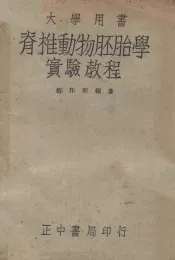 大學用書
脊椎動物胚胎學
實驗教程
正中書局印行